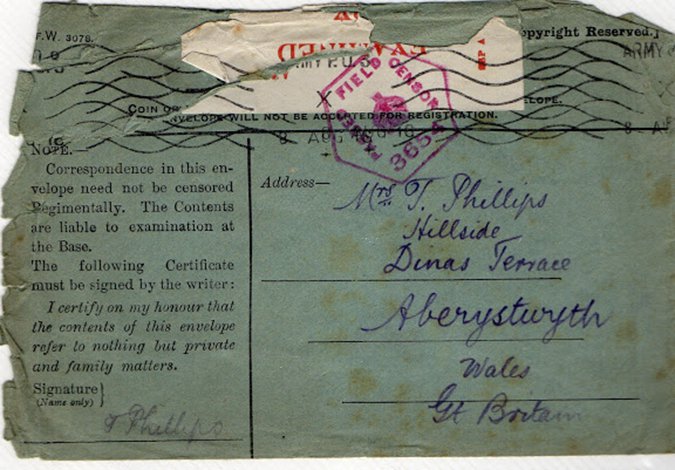 F.W. 3078.
opyright Reserved.]
EXAMINED
ARMY
FIELD CENSOR
PASSED
3654
COIN OR
ELOPE.
NVELOPE WILL NOT BE ACCEPTED FOR REGISTRATION.
8 AP
8 AP
NOTE.
Correspondence in this en-
velope need not be censored
Regimentally. The Contents
are liable to examination at
the Base.
The following Certificate
must be signed by the writer:
I certify on my honour that
the contents of this envelope
refer to nothing but private
and family matters.
Signature}
(Name only)
T Phillips
Address—
Mrs T. Phillips
Hillside
Dinas Terrace
Aberystwyth
Wales
Gt Britain